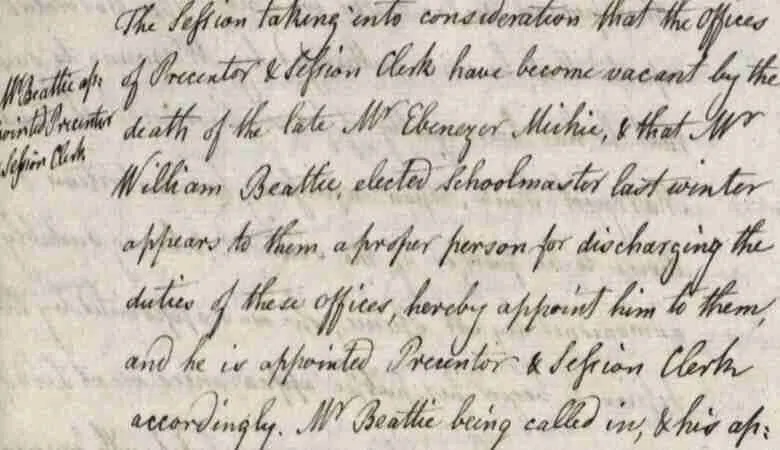 The Session taking into consideration that the offices
Mr Beattie ap:
pointed Precentor
& Session Clerk
of Precentor & Session Clerk have become vacant by the
death of the late Mr Ebenezer Michie, & that Mr
William Beattie, elected Schoolmaster last winter
appears to them a proper person for discharging the
duties of these offices, hereby appoint him to them,
and he is appointed Precentor & Session Clerk
accordingly. Mr Beattie being called in, & his ap: